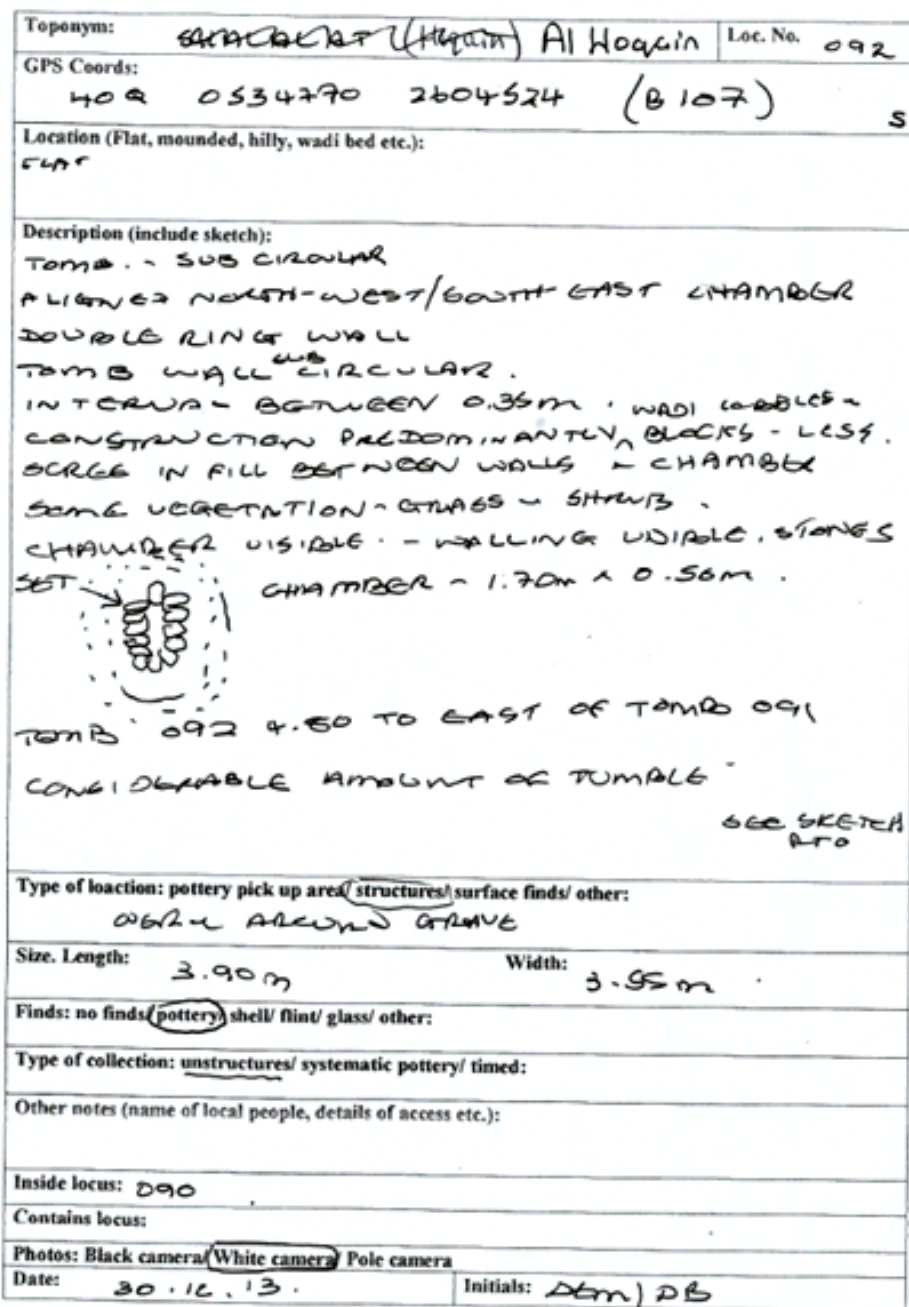 Toponym: (Hoqain) Al Hoqain Loc. No. 092
GPS Coords:
40Q 0534770 2604524 (B107)
S
Location (Flat, mounded, hilly, wadi bed etc.):
FLAT
Description (include sketch):
TOMB. - SUB CIRCULAR
ALIGNED NORTH-WEST/SOUTH EAST CHAMBER
DOUBLE RING WALL
TOMB WALL SUB CIRCULAR.
INTERNAL BETWEEN 0.35m. WADI COBBLES -
CONSTRUCTION PREDOMINANTLY ^ BLOCKS - LESS.
SCREE IN FILL BETWEEN WALLS - CHAMBER
SOME VEGETATION - GRASS - SHRUB.
CHAMBER VISIBLE. - WALLING VISIBLE. STONES
SET. CHAMBER - 1.70m x 0.56m.
TOMB 092 4.50 TO EAST OF TOMB 091
CONSIDERABLE AMOUNT OF TUMBLE
SEE SKETCH
PTO
Type of loaction: pottery pick up area/ structures/ surface finds/ other:
AROUND GRAVE
Size. Length: 3.90m Width: 3.55m
Finds: no finds/ pottery/ shell/ flint/ glass/ other:
Type of collection: unstructures/ systematic pottery/ timed:
Other notes (name of local people, details of access etc.):
Inside locus: 090
Contains locus:
Photos: Black camera/ White camera/ Pole camera
Date: 30.12.13. Initials: DB